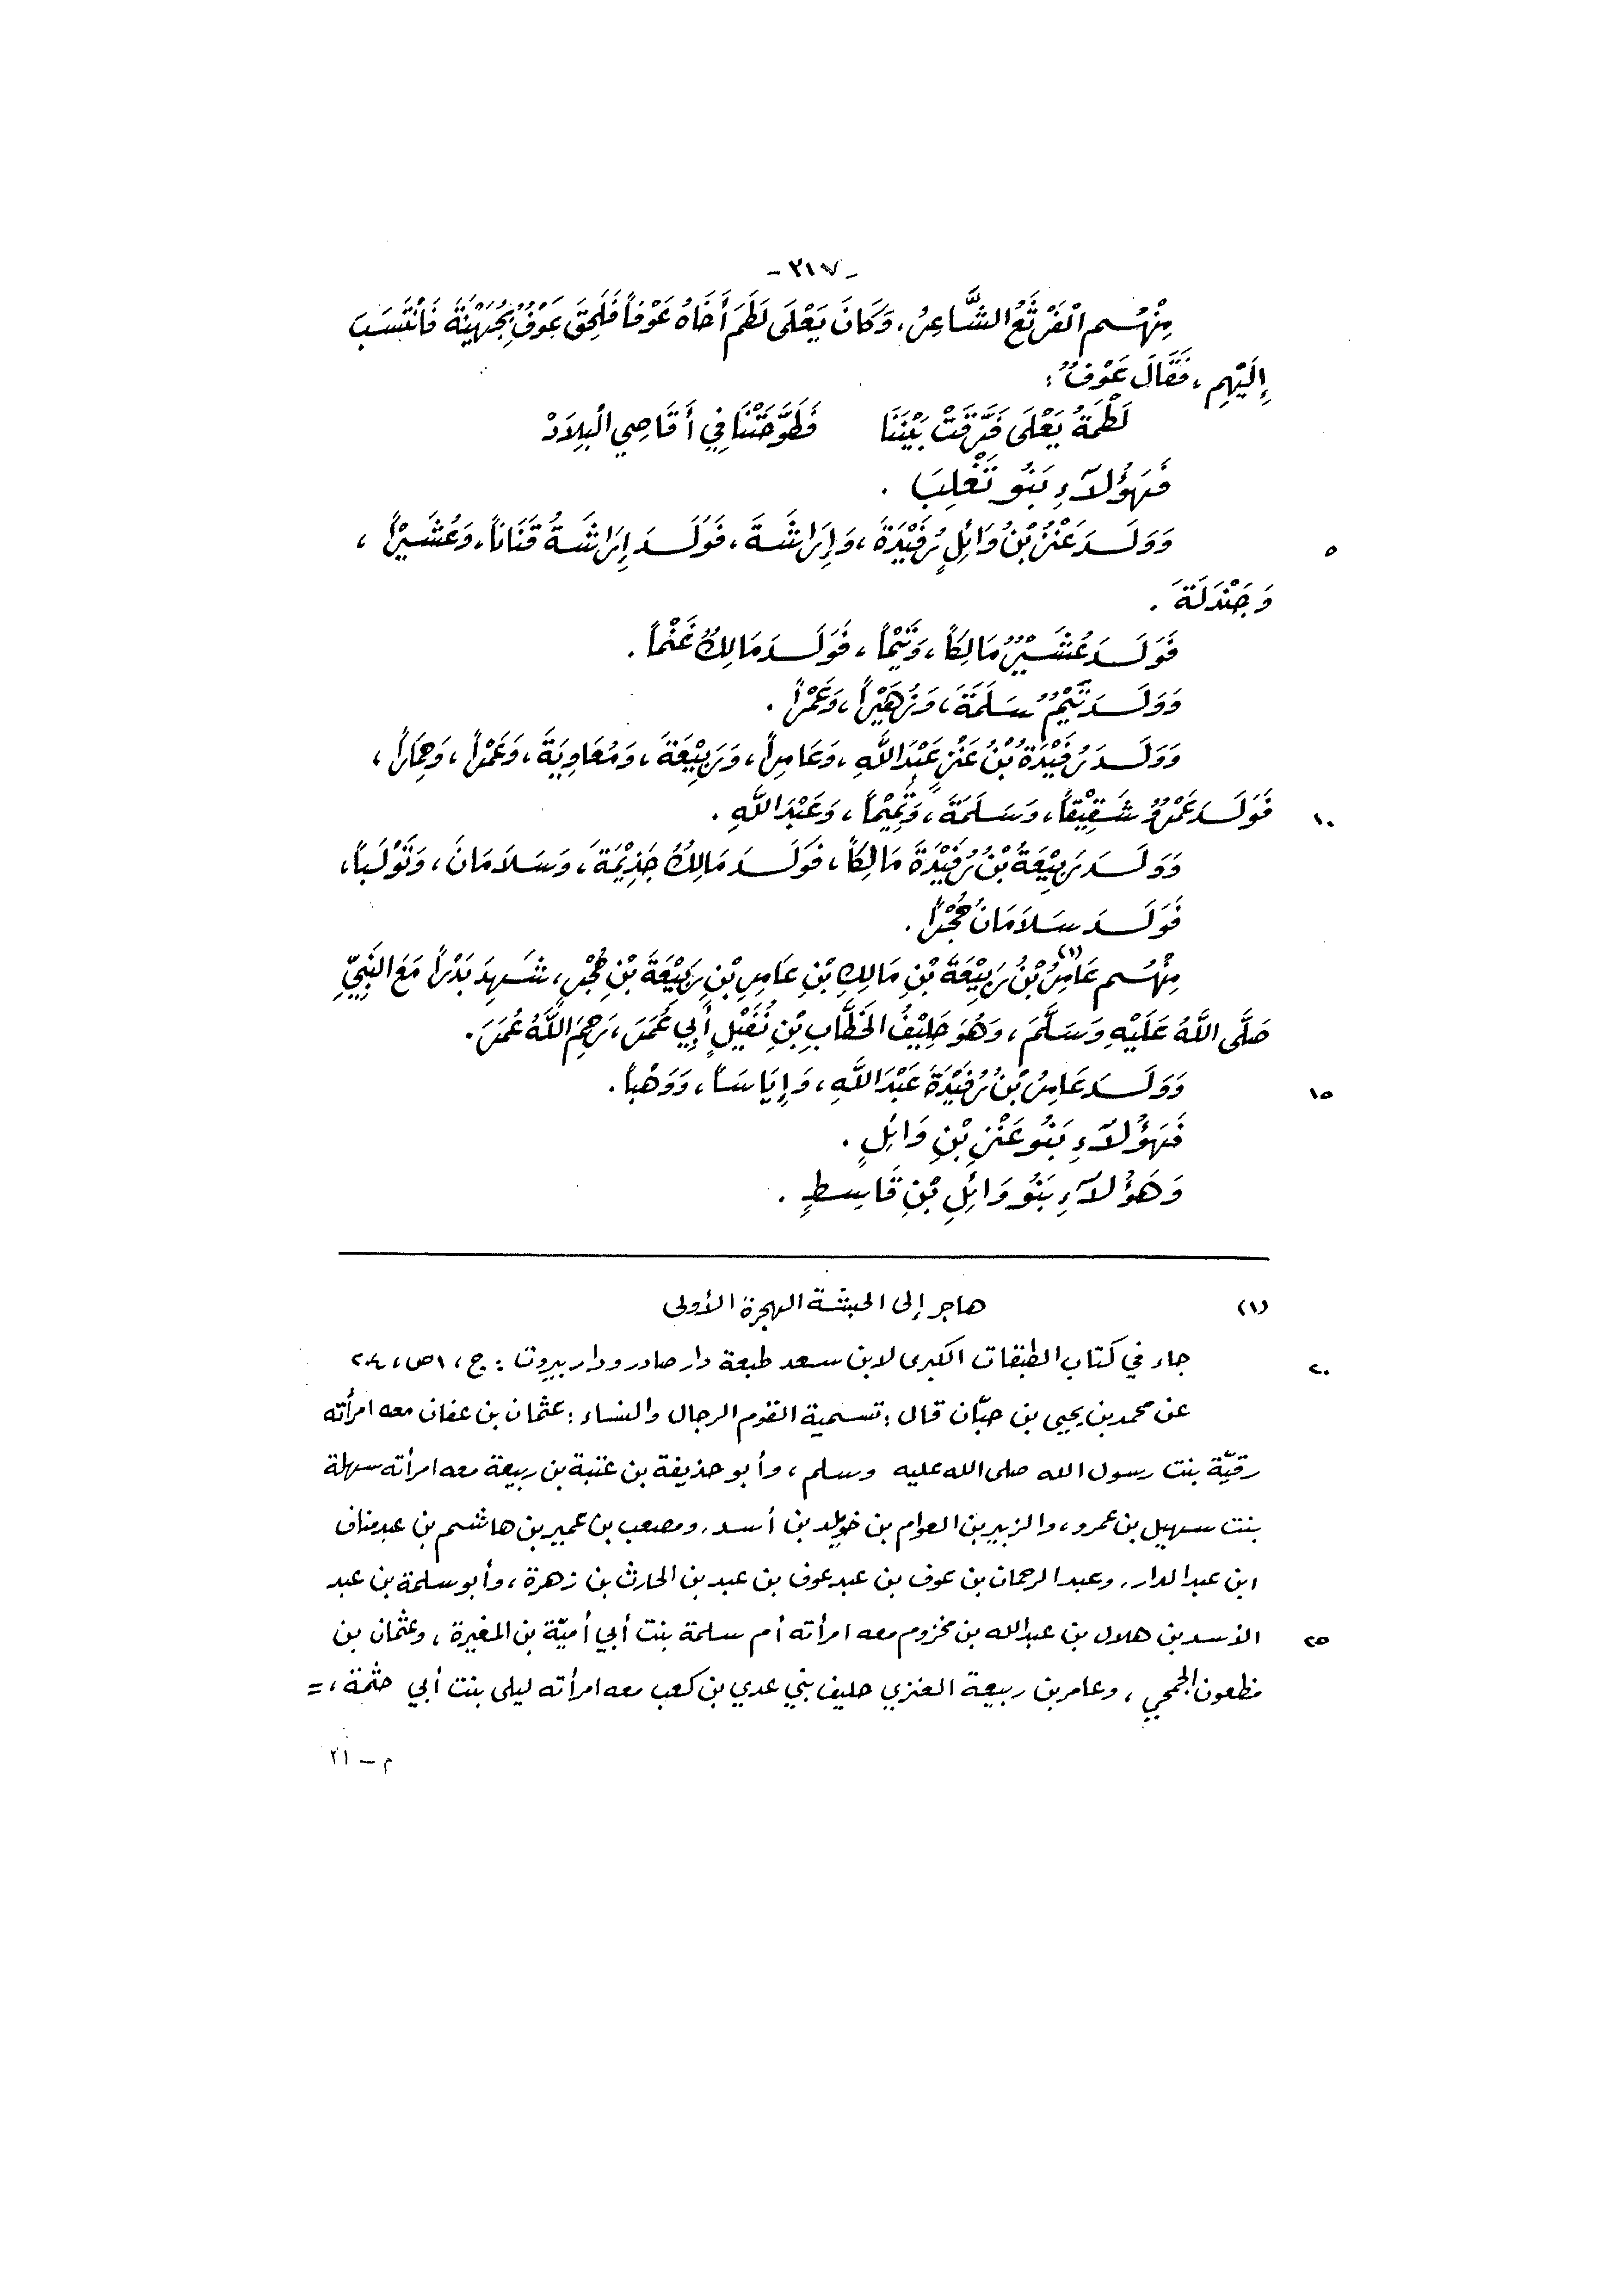 - ٣١٧ -
مِنْهُم الْفَرْثَعُ الشَّاعِرُ، وَكَانَ يَعْلَى لَطَمَ أَخَاهُ عَوْفاً فَلَحِقَ عَوْفٌ بِجُهَيْنَةَ فَانْتَسَبَ
إِلَيْهِم، فَقَالَ عَوْفٌ :
لَطْمَةُ يَعْلَى فَرَّقَتْ بَيْنَنَا فَطَوَّحَتْنَا فِي أَقَاصِي الْبِلَادْ
فَهَؤُلَآءِ بَنُو تَغْلِبَ .
وَوَلَدَ عَنْزُ بْنُ وَائِلٍ رُفَيْدَةَ، وَإِرَاشَةَ، فَوَلَدَ إِرَاشَةُ قَنَاناً، وَعُشَيْراً، ٥
وَجَنْدَلَةَ .
فَوَلَدَ عُشَيْرٌ مَالِكاً، وَتَيْماً، فَوَلَدَ مَالِكٌ غَنْماً .
وَوَلَدَ تَيْمٌ سَلَمَةَ، وَزُهَيْراً، وَعَمْراً .
وَوَلَدَ رُفَيْدَةُ بْنُ عَنْزٍ عَبْدَ اللَّهِ، وَعَامِراً، وَرَبِيْعَةَ، وَمُعَاوِيَةَ، وَعَمْراً، وَحِمَاراً،
فَوَلَدَ عَمْرٌو شَقِيْقاً، وَسَلَمَةَ، وَتَمِيْماً، وَعَبْدَ اللَّهِ . ١٠
وَوَلَدَ رَبِيْعَةُ بْنُ رُفَيْدَةَ مَالِكاً، فَوَلَدَ مَالِكٌ جَذِيْمَةَ، وَسَلَامَانَ، وَتَوْلَباً،
فَوَلَدَ سَلَامَانُ حُجْراً .
مِنْهُم عَامِرُ(١) بْنُ رَبِيْعَةَ بْنِ مَالِكِ بْنِ عَامِرِ بْنِ رَبِيْعَةَ بْنِ حُجْرٍ، شَهِدَ بَدْراً مَعَ النَّبِيِّ
صَلَّى اللَّهُ عَلَيْهِ وَسَلَّمَ، وَهُوَ حَلِيْفُ الخَطَّابِ بْنِ نُفَيْلٍ أَبِي عُمَرَ، رَحِمَ اللَّهُ عُمَرَ .
وَوَلَدَ عَامِرُ بْنُ رُفَيْدَةَ عَبْدَ اللَّهِ، وَإِيَاسَاً، وَوَهْباً . ١٥
فَهَؤُلَآءِ بَنُو عَنْزِ بْنِ وَائِلٍ .
وَهَؤُلَآءِ بَنُو وَائِلِ بْنِ قَاسِطٍ .
(١) هاجر إلى الحبشة الهجرة الأولى
جاء في كتاب الطبقات الكبرى لابن سعد طبعة دار صادر ودار بيروت : ج، ١ ص، ٢٠٤ ٢٠
عن محمد بن يحيى بن حبّان قال : تسمية القوم الرجال والنساء : عثمان بن عفان معه امرأته
رقيّة بنت رسول الله صلى الله عليه وسلم، وأبو حذيفة بن عتبة بن ربيعة معه امرأته سهلة
بنت سهيل بن عمرو، والزبير بن العوام بن خويلد بن أسد، ومصعب بن عمير بن هاشم بن عبد مناف
ابن عبد الدار، وعبد الرحمان بن عوف بن عبد عوف بن عبد بن الحارث بن زهرة، وأبو سلمة بن عبد
الأسد بن هلال بن عبد الله بن مخزوم معه امرأته أم سلمة بنت أبي أميّة بن المغيرة، وعثمان بن ٢٥
مظعون الجمحي، وعامر بن ربيعة العنزي حليف بني عدي بن كعب معه امرأته ليلى بنت أبي حثمة، =
م - ٢١